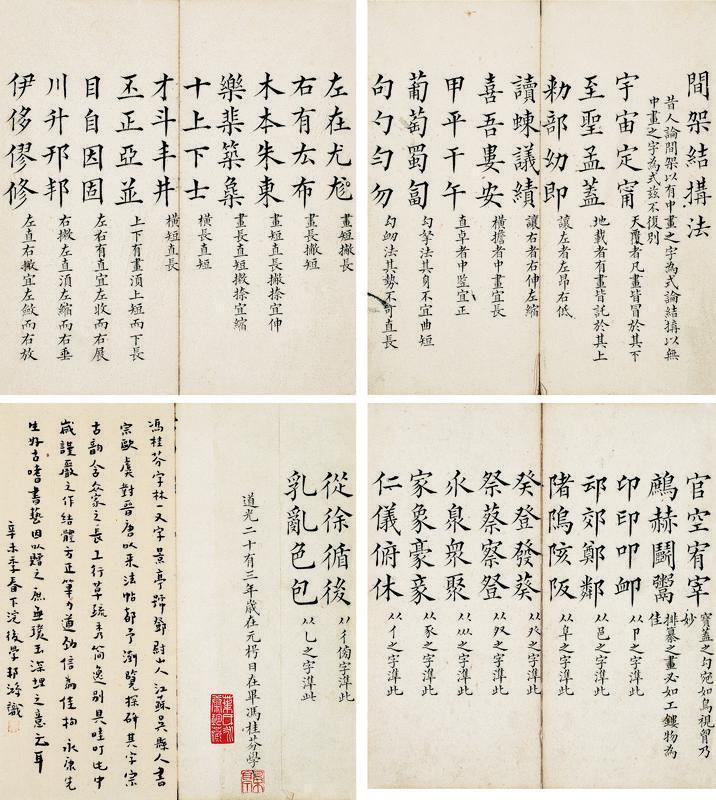 間架結搆法
昔人論間架以有中畫之字為式論結搆以無
中畫之字為式玆不復別
宇宙定甯
天覆者凡畫皆冒於其下
至聖孟蓋
地載者有畫皆託於其上
勅部幼即
讓左者左昂右低
讀蝀議績
讓右者右伸左縮
喜吾婁安
橫擔者中畫宜長
甲平干午
直卓者中竪宜正
葡萄蜀匐
勾拏法其身不宜曲短
句勺匀勿
勾刱法其勢不可直長
左在尤尨
畫短撇長
右有厷布
畫長撇短
木本朱東
畫短直長撇捺宜伸
樂棐築
畫長直短撇捺宜縮
十上下士
橫長直短
才斗丰井
橫短直長
丕正亞並
上下有畫湏上短而下長
目自因固
左右有直宜左收而右展
川升邘邦
右撇左直湏左縮而右垂
伊侈僇修
左直右撇宜左斂而右放
官空宥宰
寳蓋之勾宛如鳥視胷乃
妙
鷓赫鬭鬻
排纂之畫必如工鏤物為
佳
卯印叩卹
以卩之字准此
邷郊鄭鄰
以邑之字准此
陼隖陔阪
以阜之字准此
癸登發葵
以癶之字准此
祭蔡察
之字准此
永泉衆聚
之字准此
家象豪豙
以豕之字准此
仁儀俯休
以亻之字准此
從徐循後
以彳偹字準此
乳亂色包
以乚之字準此
道光二十有三年歲在元枵日在畢馮桂芬學
馮桂芬字林一又字景亭號鄧尉山人江蘇吳縣人書
宗歐虞對晋唐以來法帖都予瀏覽探研其字宗
古韵含各家之長工行草疏秀簡逸别具哇町此中
歲謹嚴之作結體方正筆力遒勁信為佳搆永康先
生好古嗜書藝因以贈之庶無瓊玉深埋之意云耳
辛未季春下浣後學